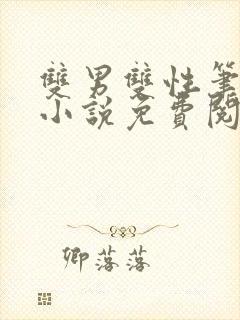 雙男雙性筆
小說免費閱
卿落落